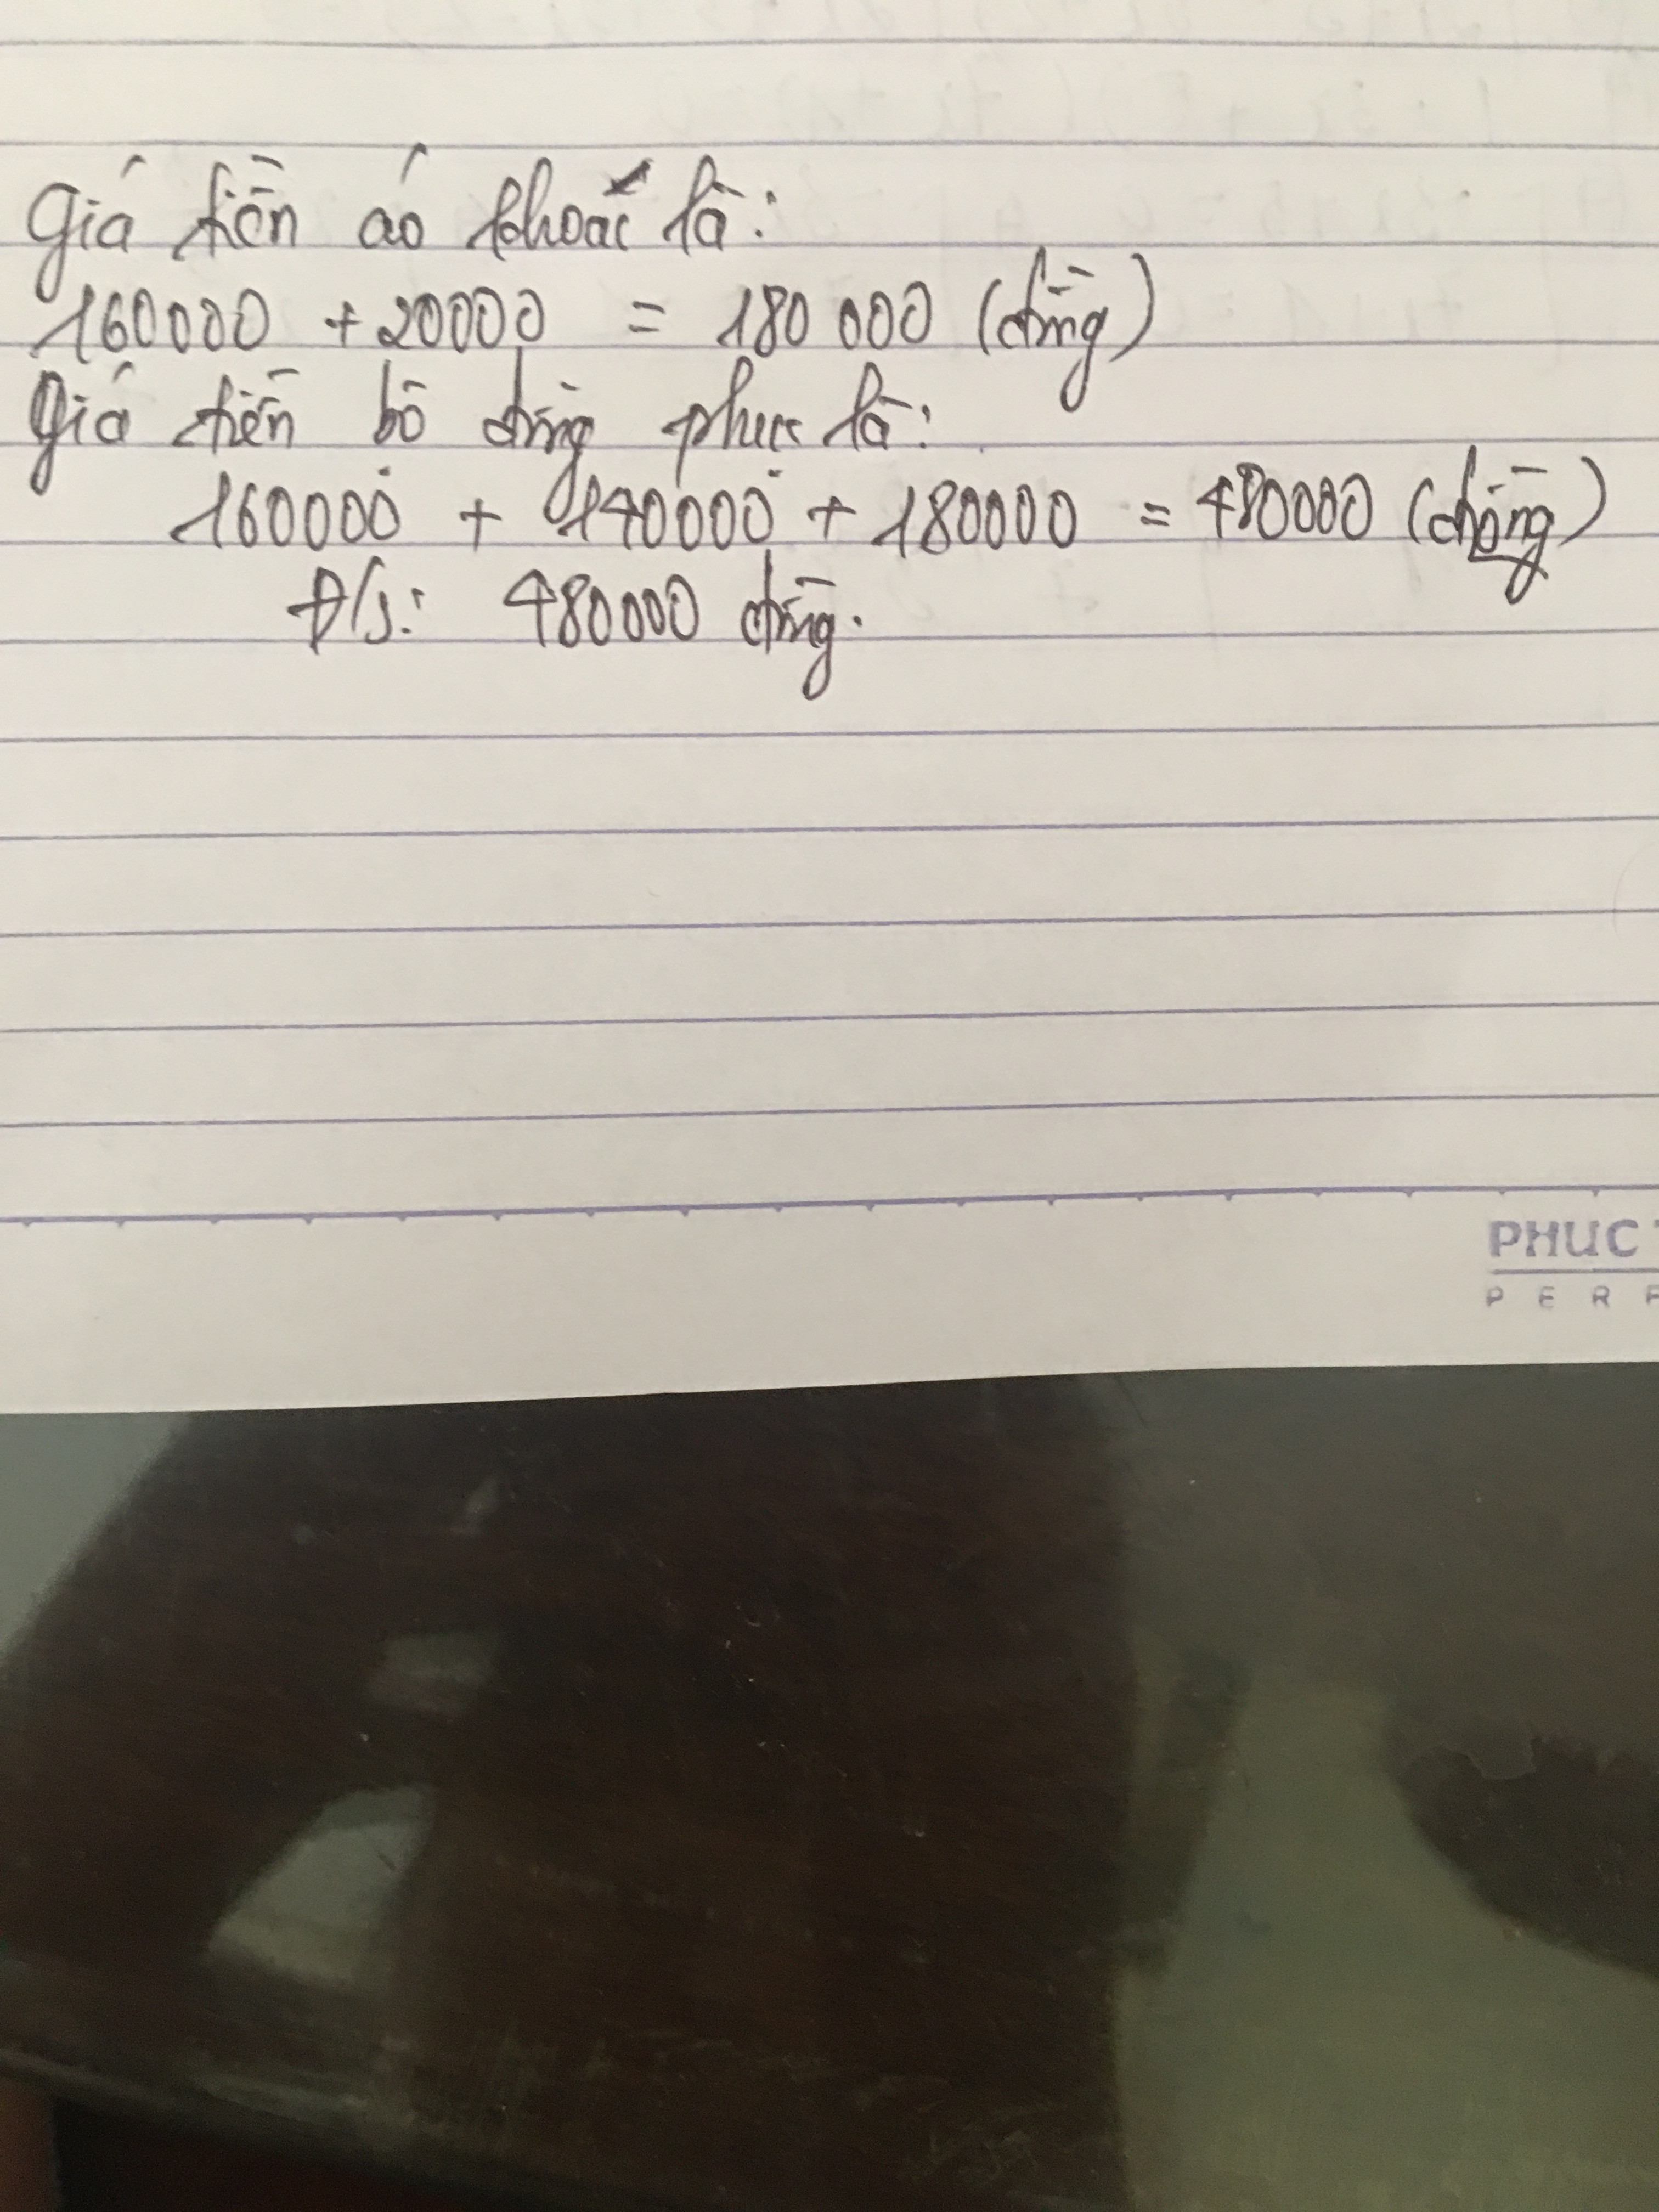 Giá tiền áo khoác là:
160000 + 20000 = 180 000 (đồng)
Giá tiền bộ đồng phục là:
160000 + 140000 + 180000 = 480000 (đồng)
Đ/s: 480000 đồng.
PHUC
PER